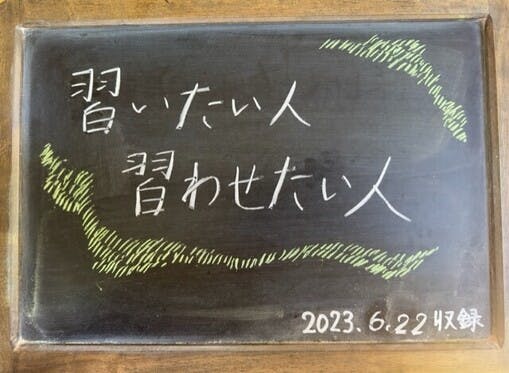 習いたい人
習わせたい人
2023.6.22収録